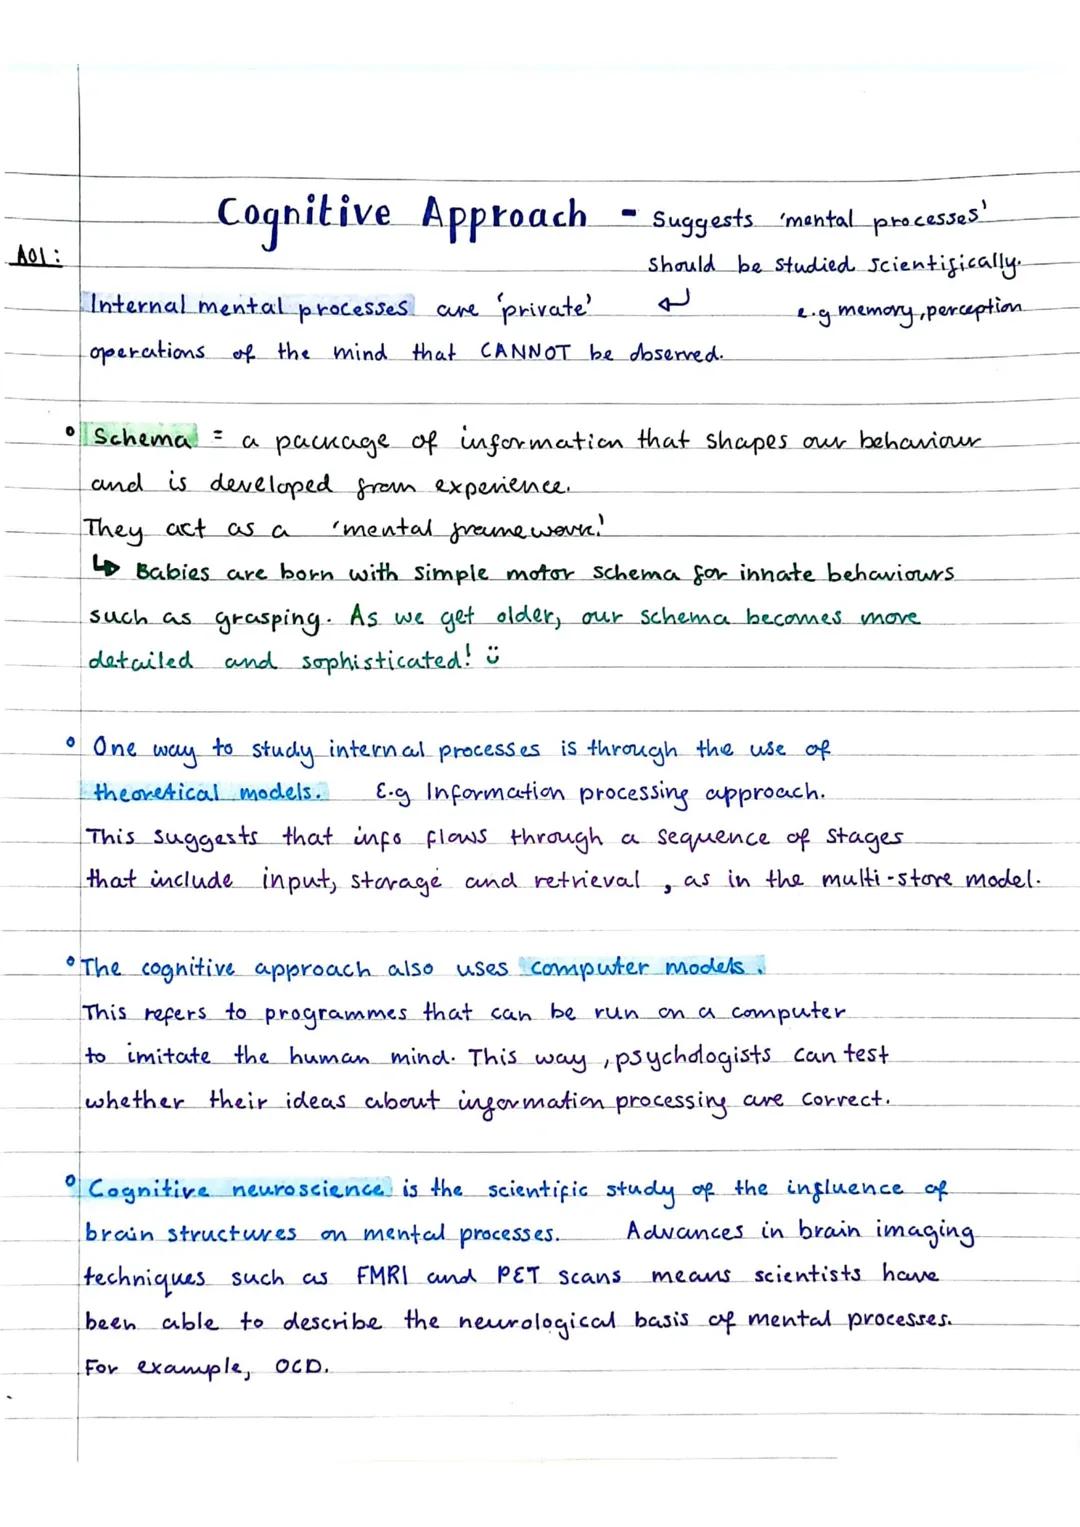 Cognitive Approach - Suggests 'mental processes'
should be studied scientifically.
AO1:
Internal mental processes are 'private' e.g memory, perception
operations of the mind that CANNOT be observed.
Schema = a package of information that shapes our behaviour
and is developed from experience.
They act as a 'mental framework'
Babies are born with simple motor schema for innate behaviours
such as grasping. As we get older, our schema becomes more
detailed and sophisticated!
One way to study internal processes is through the use of
theoretical models. E.g Information processing approach.
This suggests that info flows through a sequence of stages
that include input, storage and retrieval, as in the multi-store model.
The cognitive approach also uses computer models.
This refers to programmes that can be run on a computer
to imitate the human mind. This way, psychologists can test
whether their ideas about information processing are correct.
Cognitive neuroscience is the scientific study of the influence of
brain structures on mental processes. Advances in brain imaging
techniques such as FMRI and PET scans means scientists have
been able to describe the neurological basis of mental processes.
For example, OCD.